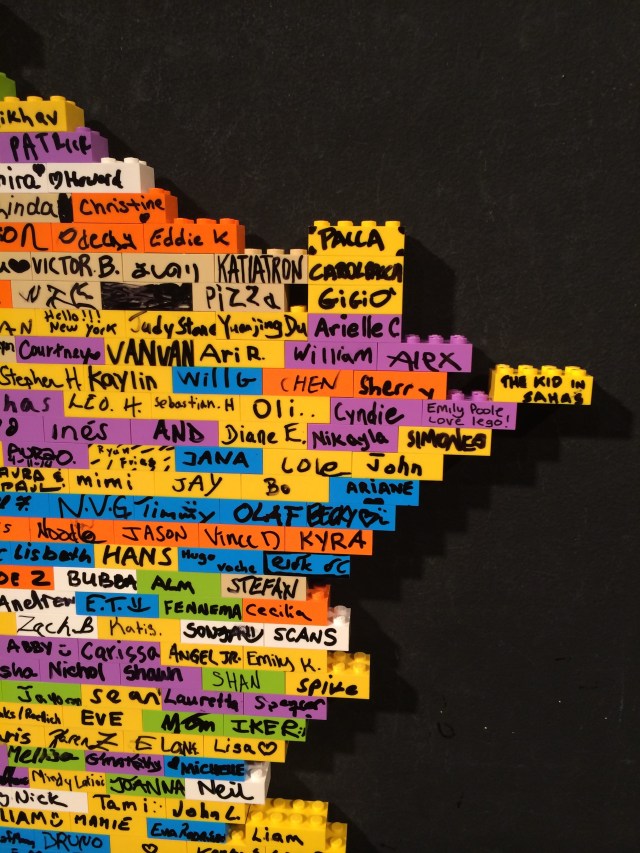 ikhav
PATRICK
mira ♥ ♡ Howard
Lynda Christine
SON Odechy Eddie K PAULA
♥ VICTOR.B. KATIATRON CAROLBACA
PiZZa GiGiO
Hello!!! New York Judy Stone Yuenjing Du Arielle C
Courtney VANVAN Ari R. William Alex
Stephen H. Kaylin Will G CHEN Sherry THE KID IN SAHAS
has LEO. H. Sebastian. H Oli.. Cyndie Emily Poole Love lego!
inés AND Diane E. Nikayla SIMONES
JANA LOLE John
PAUL mimi JAY Bo ARIANE
N.V.G Timmy OLAF BECKY
Noodle JASON Vince D KYRA
Lisbeth HANS Hugo vache
DE Z BUBBA ALM STEFAN
Andrew E.T. FENNEMA Cecilia
Zach.B Katis. SCANS
ABBY Carissa ANGEL JR. Emily K.
sha Nichol Shawn SHAN Spike
sean Lauretta Spencer
EVE Mom IKER:)
ELANK Lisa♡
Melissa MICHELE
JOANNA Neil
Nick Tami: John L.
LIAM MARIE
DRUNO Liam